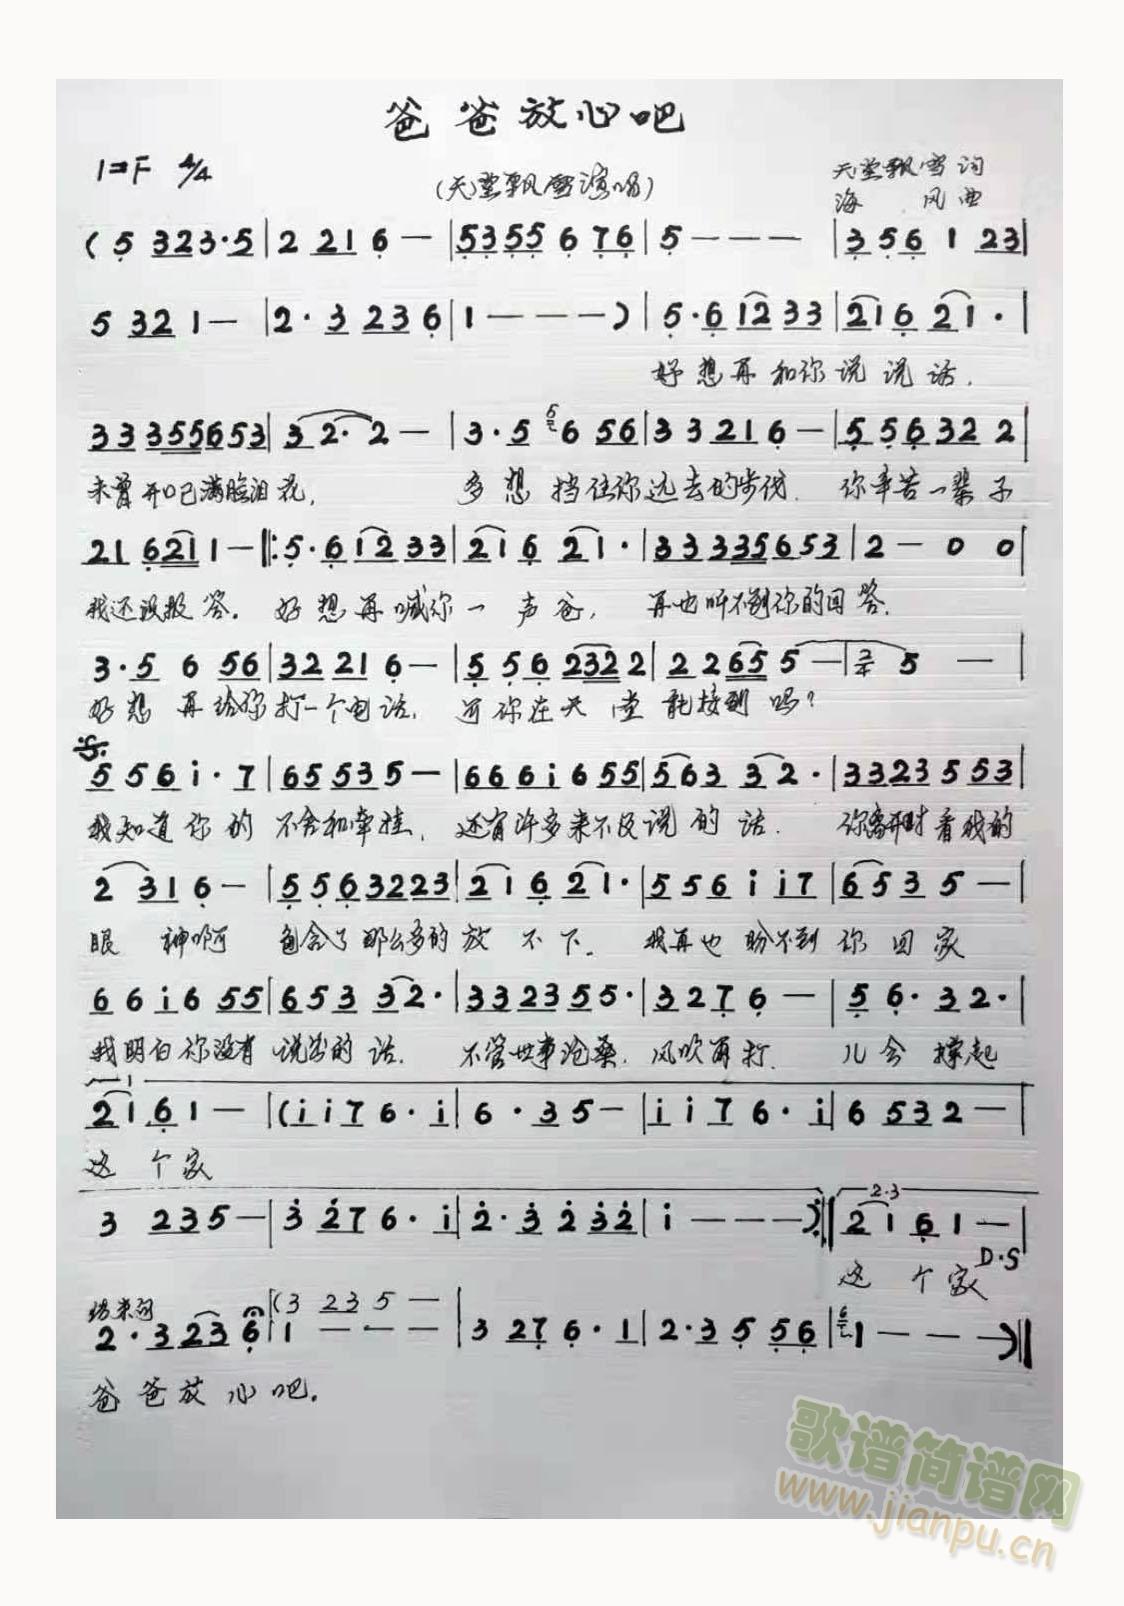 爸爸放心吧
1=F 4/4
(天堂飘雪演唱)
天堂飘雪词
海风曲
(5 323·5|2 221 6—|5355 6 76|5———|356 1 23|
5 321—|2·3 236|1———)|5·6 12 33|216 21·|
好想再和你说说话,
33355653|32·2—|3·5 6 56|33 221 6—|556322 2|
未曾开口已满脸泪花, 多想挡住你远去的步伐. 你辛苦一辈子
21 6211—‖:5·6 12 33|216 21·|333335653|2—00|
我还没报答。好想再喊你一声爸, 再也听不到你的回答.
3·5 6 56|32 21 6—|556 2322 2|2 265 5—|2/4 5—|
好想再给你打一个电话, 可你在天堂能接到吗?
5 5 6 i·7|65 535—|666i655|563 32·|3323553|
我知道你的不舍和牵挂, 还有许多来不及说的话. 你离开时看我的
2 316—|5563223|216 21·|556 i i7|6535—|
眼神啊 包含了那么多的放不下. 我再也盼不到你回家
66i6 55|653 32·|332355·|3276—|56·32·|
我明白你没有说出的话. 不管世事沧桑.风吹雨打. 儿会撑起
1
2161—|(ii76·i|6·35—|ii76·i|6532—|
这个家
3 235—|3 276·i|2·3 232|i———):‖2161—|
2·3
这个家
D·S
结束句
(3 235—
2·3 236|1———|3 276·1|2·35 56|1———)‖
爸爸放心吧.
歌谱简谱网
www.jianpu.cn